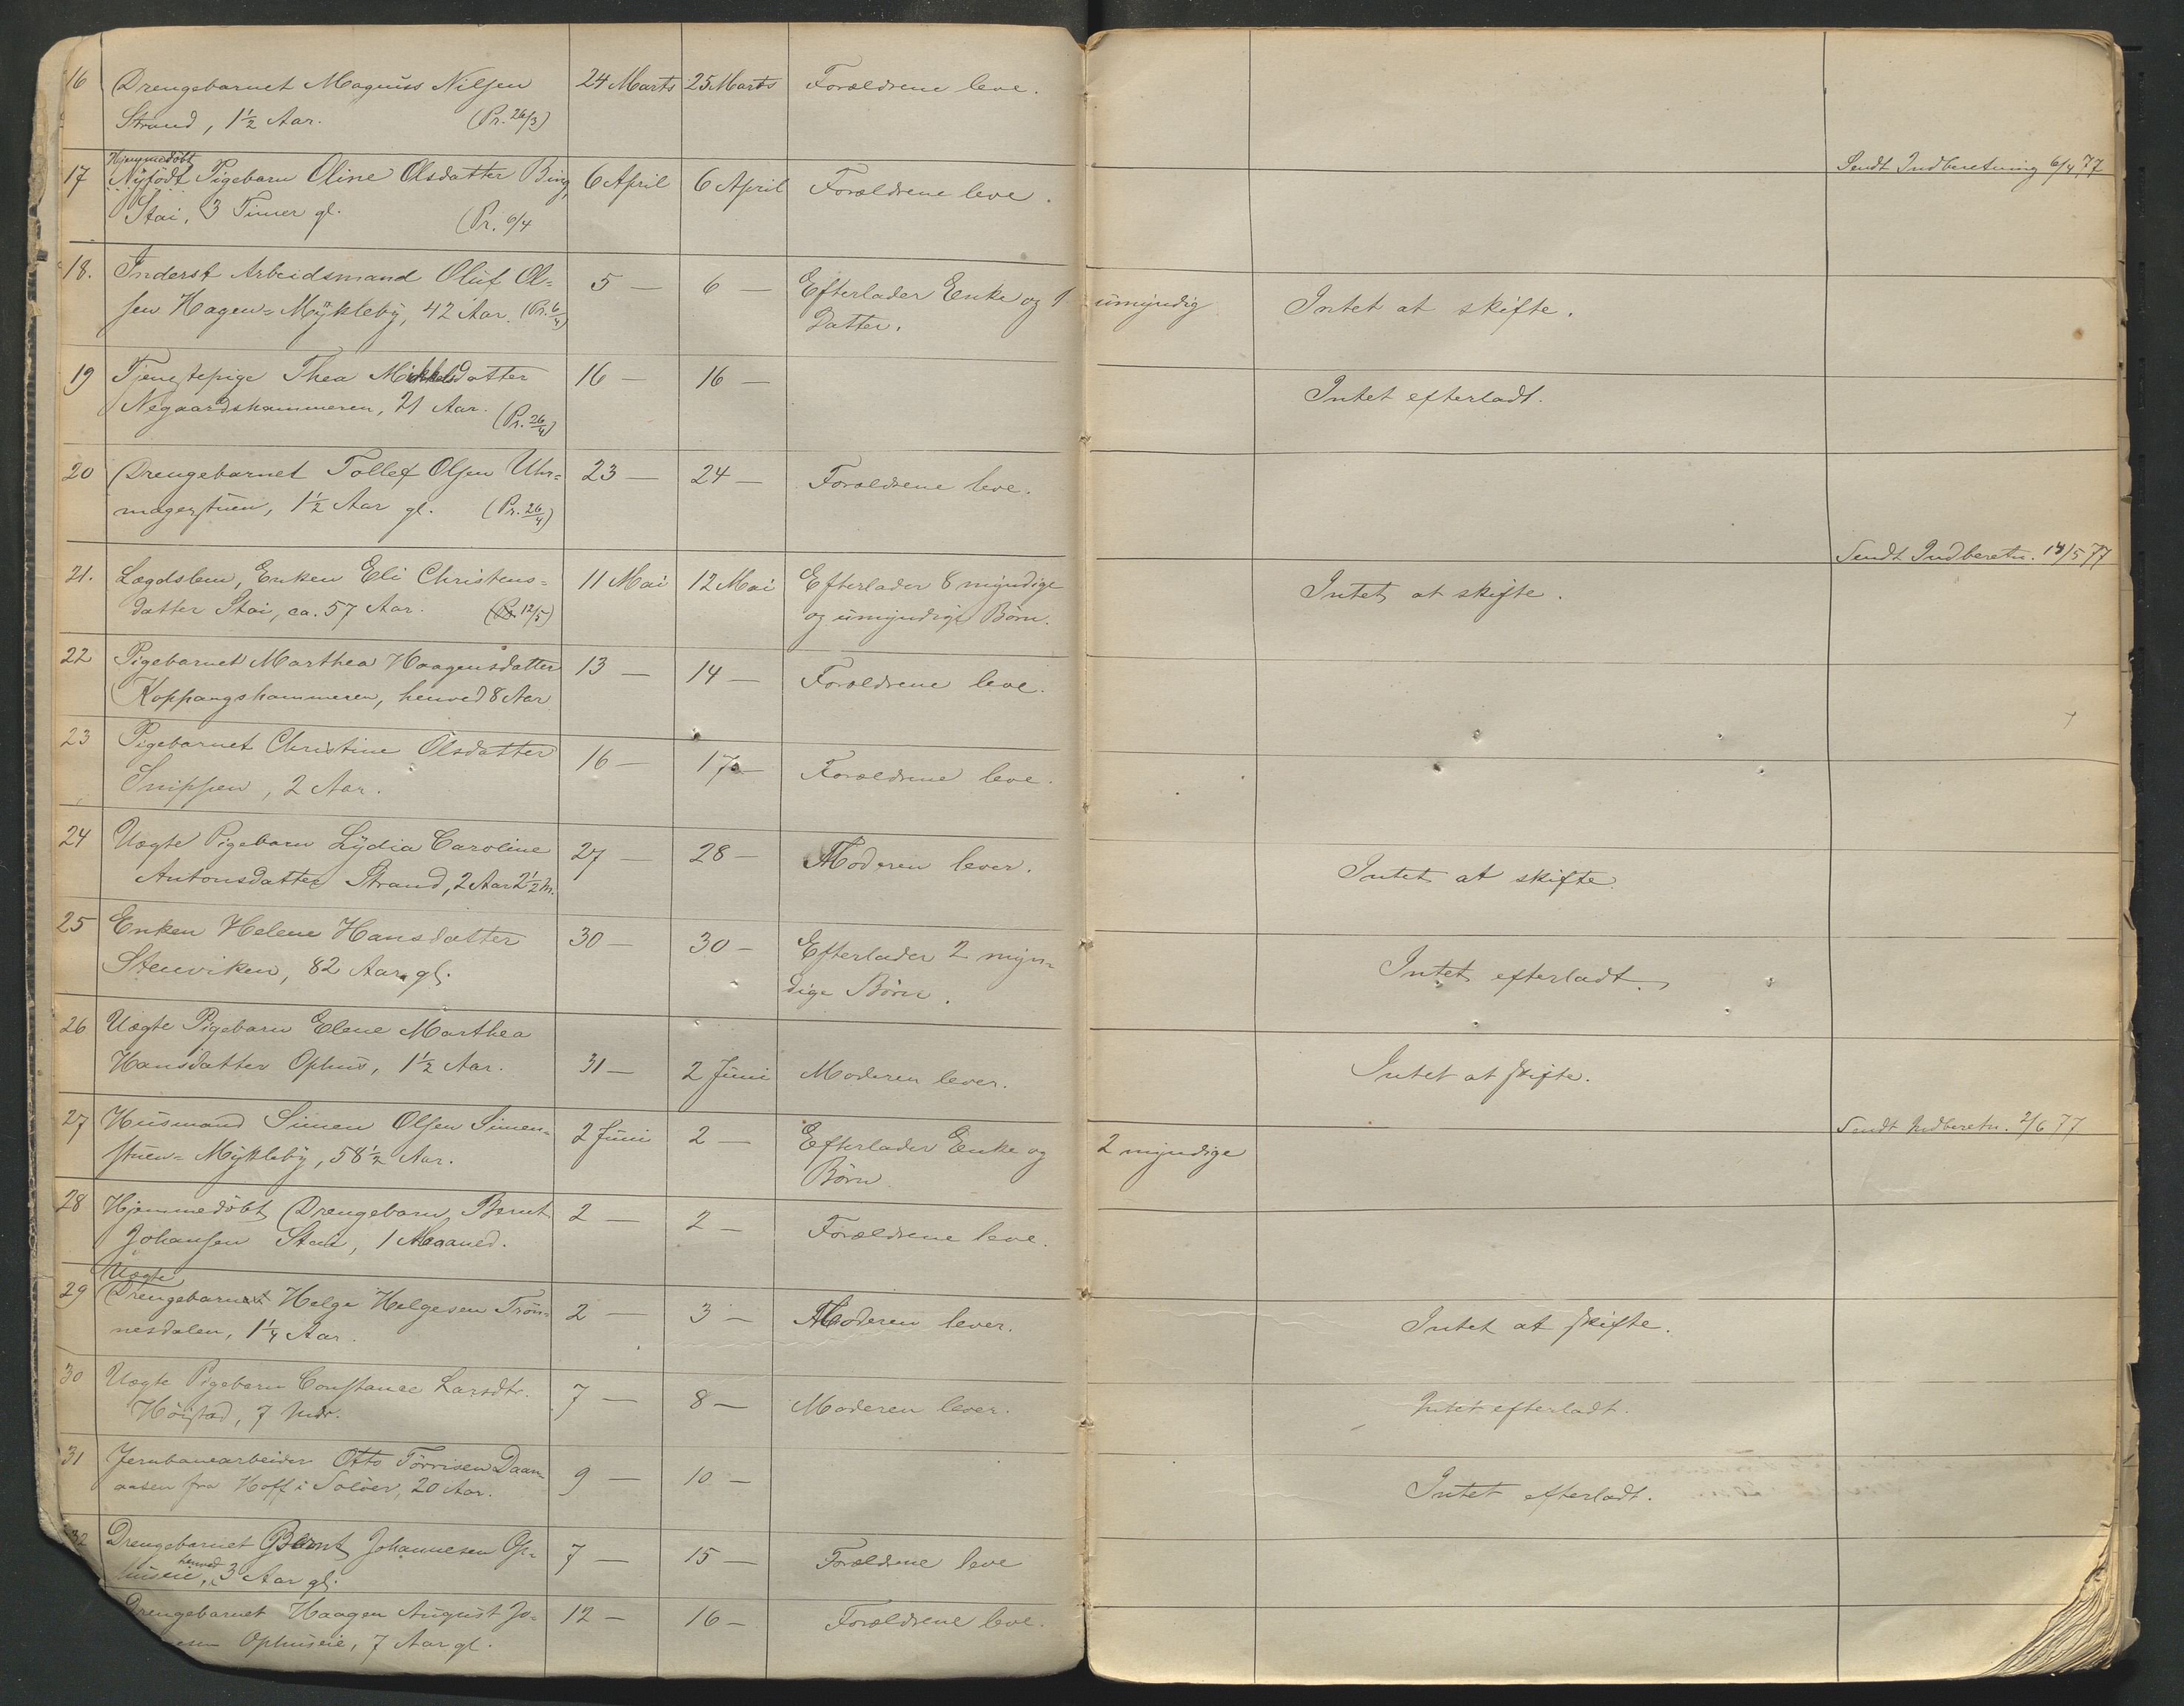 16 Drengebarnet Magnus Nilsen 24 Marts 25 Marts Forældrene leve.
Strand, 1½ Aar. (Pr. 26/3)
Hjemmedøbt Sendt Indberetning 6/4 77
17 Nyfødt Pigebarn Oline Olsdatter Bing, 6 April 6 April Forældrene leve.
Stai, 3 Timer gl. (Pr. 6/4
18. Inderst Arbeidsmand Oluf Ol- 5 — 6 — Efterlader Enke og 1 umyndig Intet at skifte.
sen Hagen=Mykleby, 42 Aar. (Pr. 6/4) Datter.
19 Tjenestepige Thea Mikkelsdatter 16 — 16 — Intet efterladt.
Negaardshammeren, 21 Aar. (Pr. 26/4)
20 Drengebarnet Tollef Olsen Uhr= 23 — 24 — Forældrene leve.
magerstuen, 1½ Aar gl. (Pr. 26/4)
Sendt Indberetn. 14/5 77
21. Lægdslem, Enken Eli Christens= 11 Mai 12 Mai Efterlader 8 myndige Intet at skifte.
datter Stai, ca. 57 Aar. (Pr. 12/5) og umyndige Børn.
22 Pigebarnet Marthea Haagensdatter 13 — 14 — Forældrene leve.
Koppangshammeren, henved 8 Aar
23 Pigebarnet Christine Olsdatter 16 — 17 — Forældrene leve.
Snippen, 2 Aar.
24 Uægte Pigebarn Lydia Caroline 27 — 28 — Moderen lever. Intet at skifte.
Antonsdatter Strand, 2 Aar 2½ M.
25 Enken Helene Hansdatter 30 — 30 — Efterlader 2 myn= Intet efterladt.
Stenviken, 82 Aar gl. dige Børn.
26 Uægte Pigebarn Elene Marthea
Hansdatter Ophus, 1½ Aar. 31 — 2 Juni Moderen lever. Intet at skifte.
Sendt Indberetn. 2/6 77
27 Husmand Simen Olsen Simen= 2 Juni 2 — Efterlader Enke og 2 myndige
stuen=Mykleby, 58½ Aar. Børn
28 Hjemmedøbt Drengebarn Bernt 2 — 2 — Forældrene leve.
Johansen Stai, 1 Maaned.
Uægte
29 Drengebarnet Helge Helgesen Trøn= 2 — 3 — Moderen lever. Intet at skifte.
nesdalen, 1¼ Aar.
30 Uægte Pigebarn Constance Larsdtr. 7 — 8 — Moderen lever. Intet efterladt.
Høistad, 7 Mdr.
31 Jernbanearbeider Otto Tørrisen Daam= 9 — 10 — Intet efterladt.
aasen fra Hoff i Soløer, 20 Aar.
32 Drengebarnet Bernt Johannesen Op= 7 — 15 — Forældrene leve
huseie, henved 3 Aar gl.
Drengebarnet Haagen August Jo= 12 — 16 — Forældrene leve.
esen Ophuseie, 7 Aar gl.